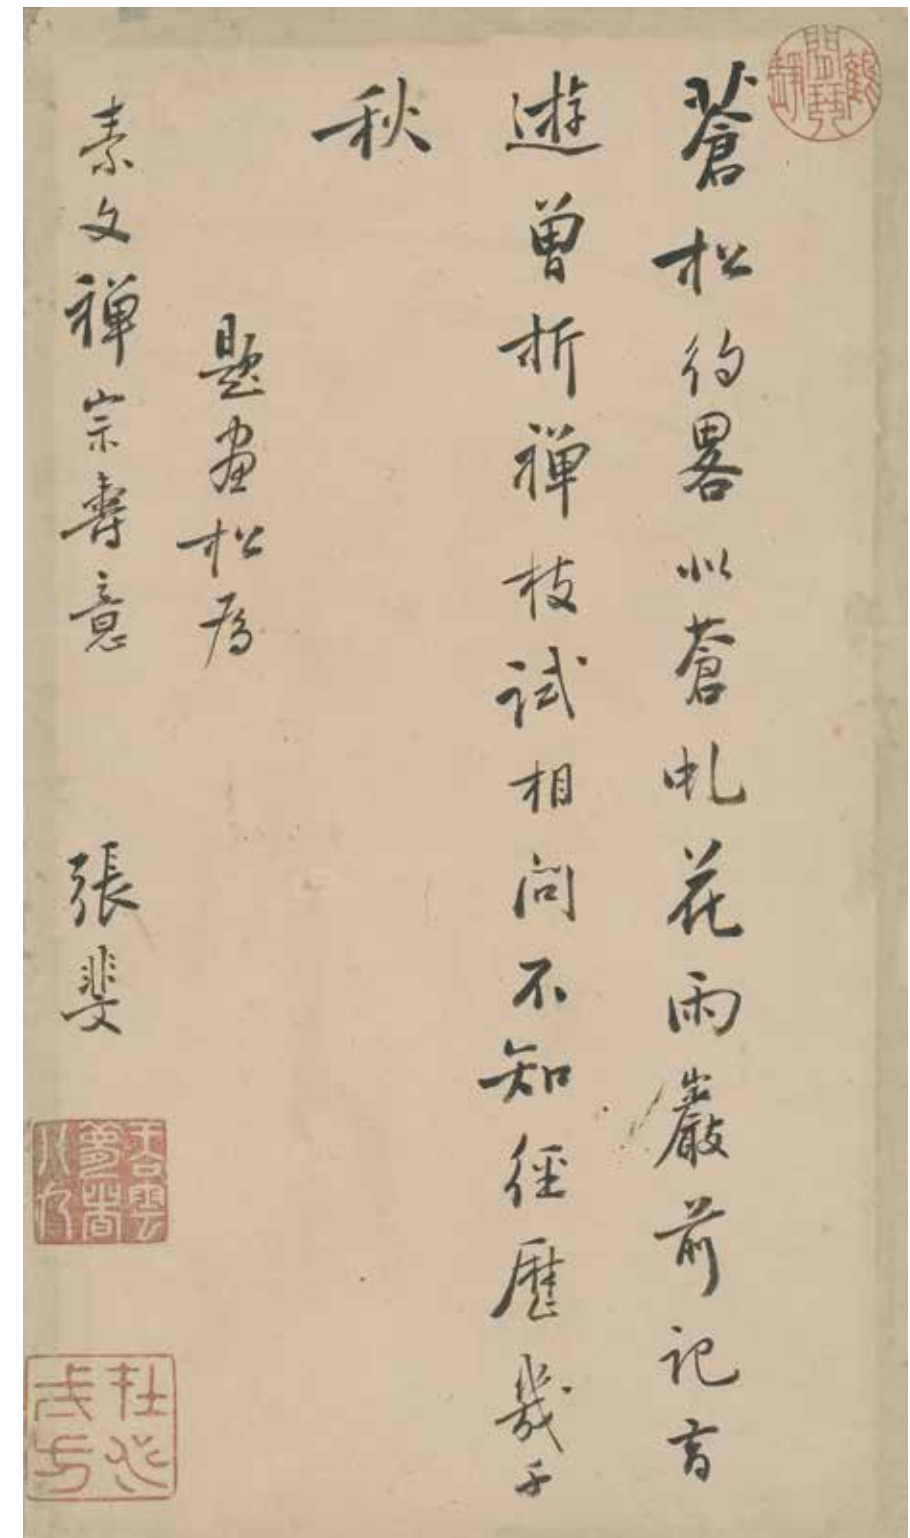 蒼松約畧似蒼虬花雨巖前記舊
遊曾折禪枝試相問不知經歷幾千
秋
題畫松為
素文禪宗壽意 張斐